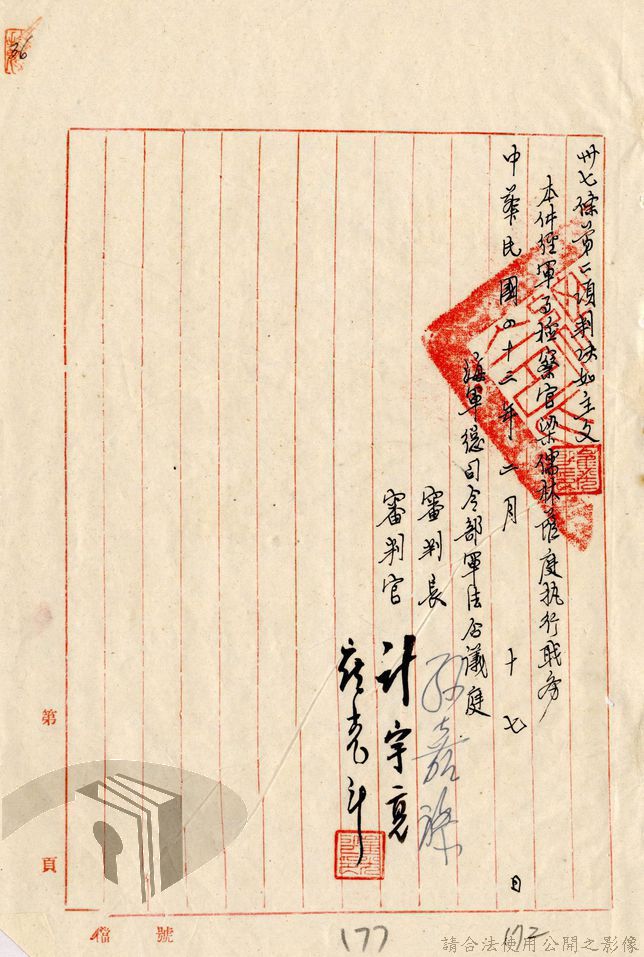 卅七條第二項判決如主文
本件經軍事檢察官梁儒林蒞庭執行職務
中華民國四十三年二月十七日
海軍總司令部軍法合議庭
審判長 孫嘉
審判官 計宇亮
第 頁
檔 號
177
172
36
請合法使用公開之影像